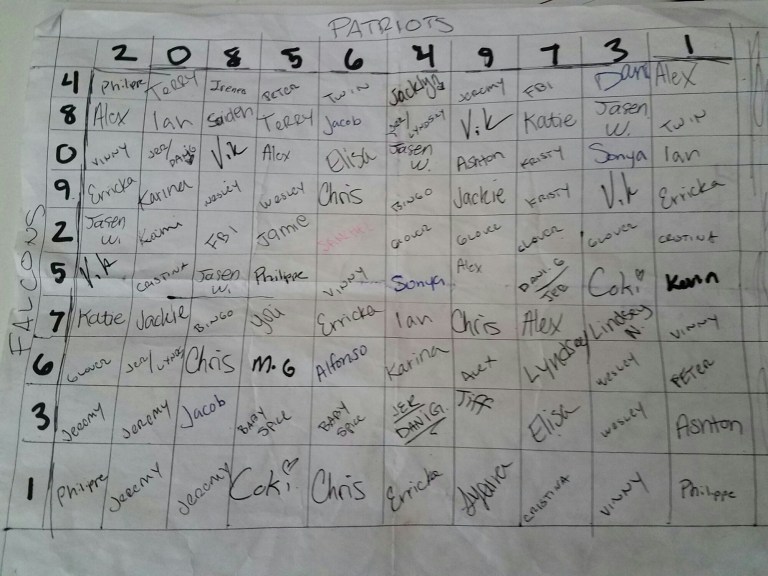 PATRIOTS
2 0 8 5 6 4 9 7 3 1
FALCONS
4 Philippe TERRY Irenna PETER TWIN Jacklyn JEREMY FBI Dan Alex
8 Alex Ian Saiden TERRY Jacob JER/LYNDSAY Vik Katie Jasen W. TWIN
0 VINNY JER/DANIG Vik Alex Elisa Jasen W. Ashton KRISTY Sonya Ian
9 Erricka Karina WESLEY WESLEY Chris BINGO Jackie KRISTY Vik Erricka
2 Jasen W. FBI Jamie GLOVER GLOVER GLOVER GLOVER CRISTINA
5 Vik CRISTINA Jasen W. Philippe VINNY Sonya Alex DANI.G/JER Coki Kevin
7 Katie Jackie BINGO You Erricka Ian Chris Alex Lindsay N. VINNY
6 GLOVER JER/LYNDS Chris M.G Alfonso Karina Alex Lyndsey WESLEY PETER
3 Jeremy Jeremy Jacob BABY SPICE BABY SPICE JER DANIG. Jiff Elisa WESLEY Ashton
1 Philippe Jeremy Jeremy Coki Chris Erricka CRISTINA VINNY Philippe